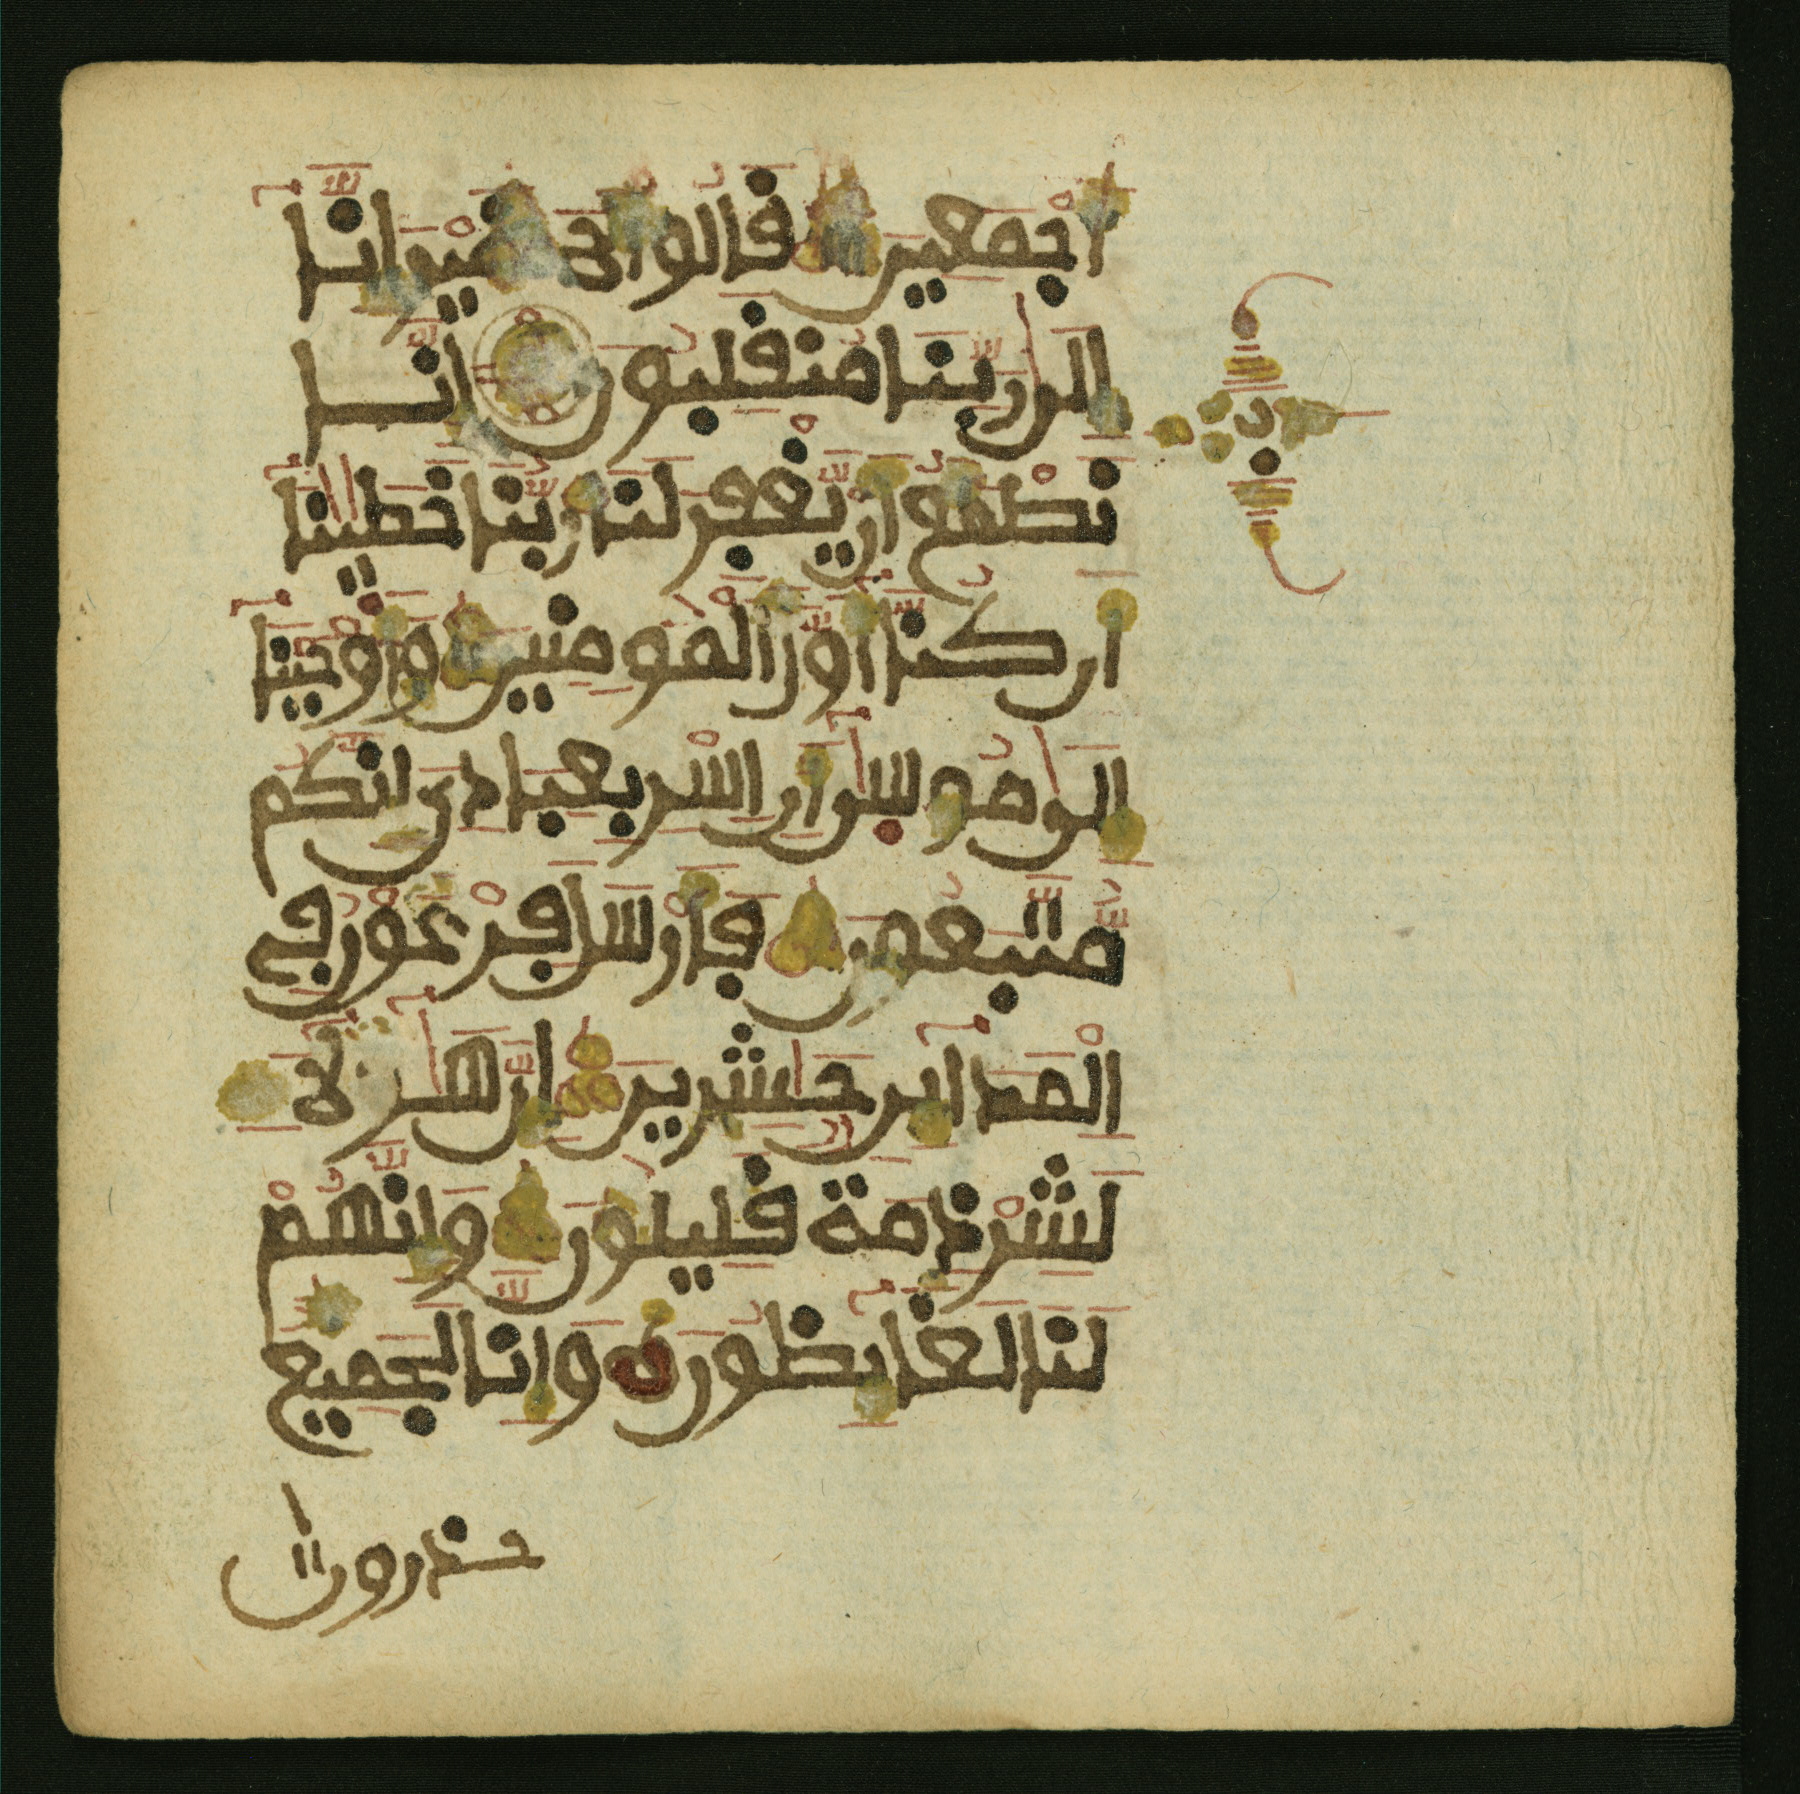 اجمعين قالوا لا ضير انا
الى ربنا منقلبون انا
نطمع ان يغفر لنا ربنا خطينا
ان كنا اول المومنين واوحينا
الى موسى ان اسر بعبادى انكم
متبعون فارسل فرعون في
المداين حشرين ان هولا
لشرذمة قليلون وانهم
لنا لغايظون وانا لجميع
حذرون